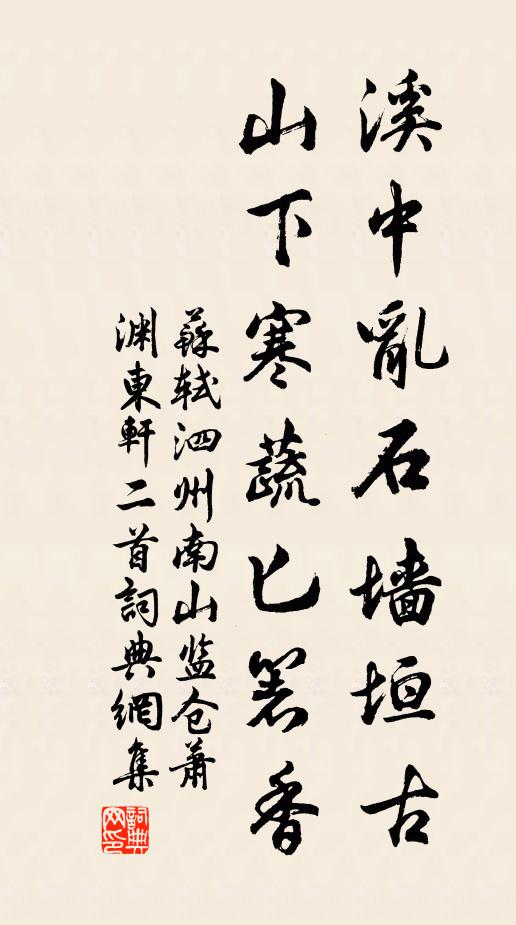 溪中亂石墙垣古
山下寒蔬匕箸香
蘇轼泗州南山监仓蕭
渊東軒二首詞典網集
詞典网印